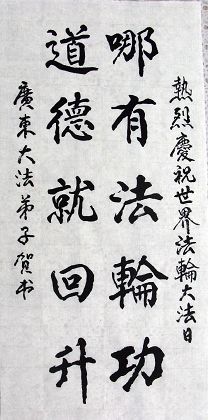 熱烈慶祝世界法輪大法日
哪有法輪功
道德就回升
廣東大法弟子贺书